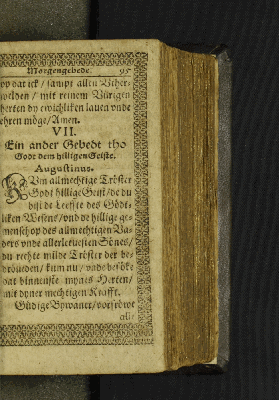 Morgengebede. 95
vp dat ick / sampt allen Vther-
welden / mit reinem Vürigen
herten dy ewichliken lauen vnde
ehren möge / Amen.
VII.
Ein ander Gebedt tho
Godt dem hilligen Geiste.
Augustinus.
Kum allmechtige Tröster
Godt hillige Geist / de du
bist de Leeffte des Gödt-
liken Wesens / vnd de hillige ge-
menschop des allmechtigen Va-
ders vnde allerleuesten Sönes /
du rechte milde Tröster der be-
dröueden / kum nu / vnde besöke
dat binnenste mynes Herten /
mit dyner mechtigen Krafft.
Güdige Bywaner / vorfrowe
all-